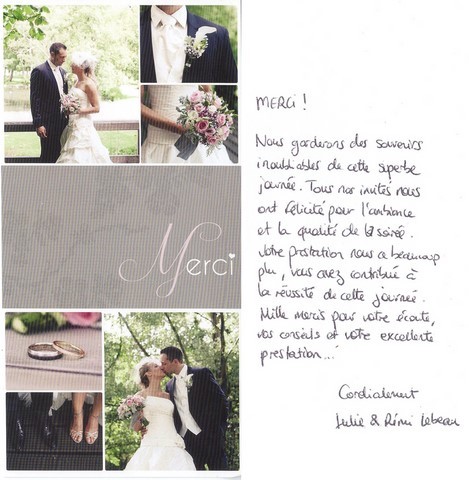 Merci
MERCI !
Nous garderons des souvenirs
inoubliables de cette superbe
journée. Tous nos invités nous
ont félicité pour l'ambiance
et la qualité de la soirée.
Votre prestation nous a beaucoup
plu, vous avez contribué à
la réussite de cette journée.
Mille mercis pour votre écoute,
vos conseils et votre excellente
prestation...
Cordialement
Julie & Rémi Lebeau